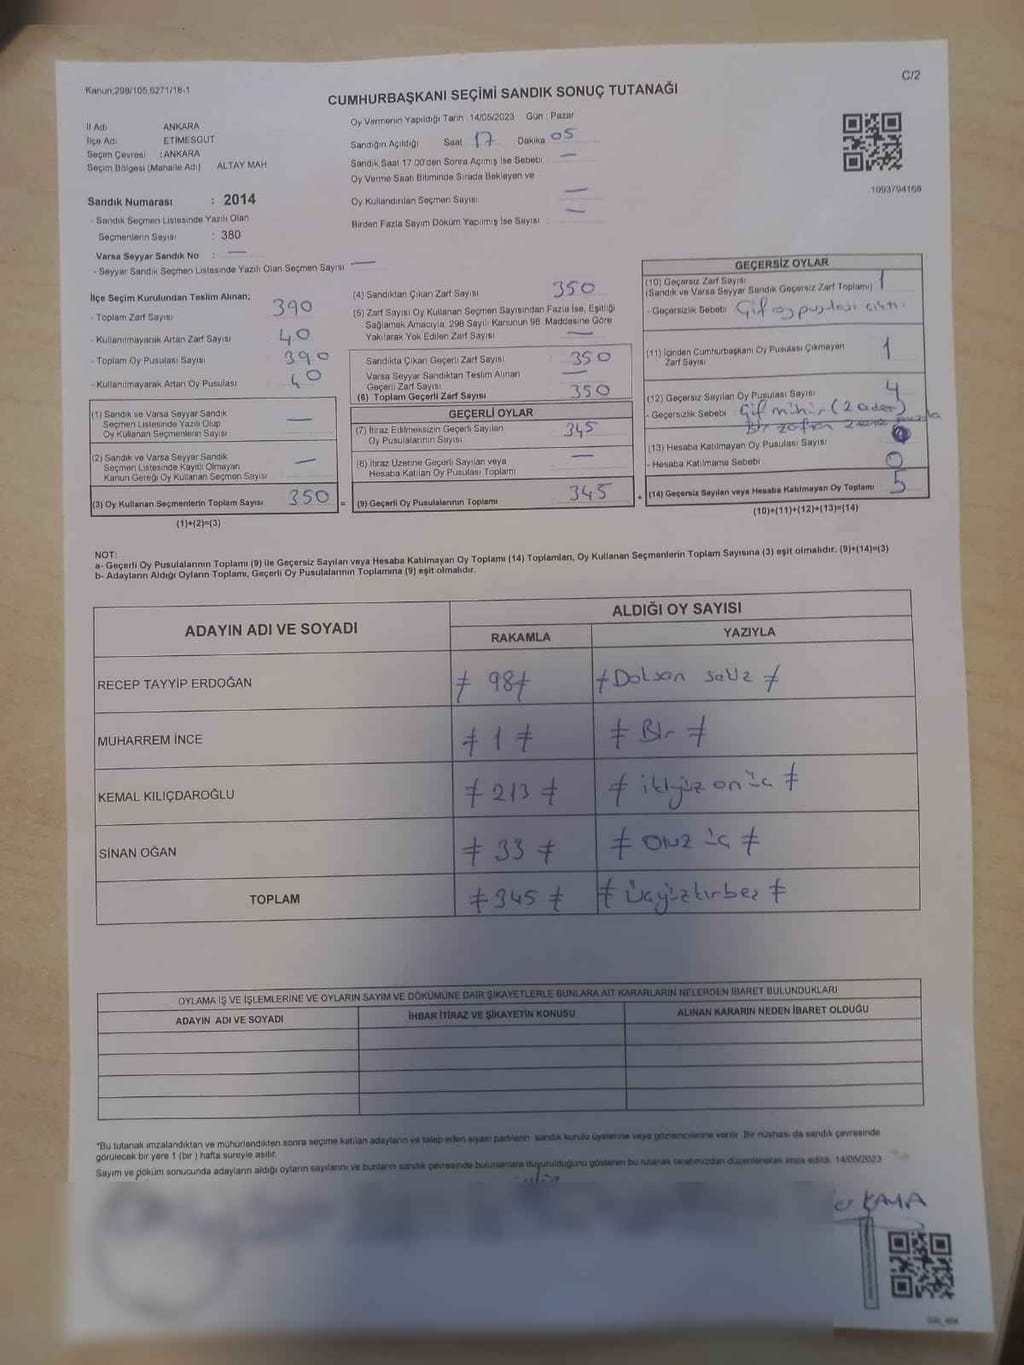 Kanun;298/105,6271/18-1
C/2
CUMHURBAŞKANI SEÇİMİ SANDIK SONUÇ TUTANAĞI
İl Adı ANKARA
İlçe Adı ETİMESGUT
Seçim Çevresi : ANKARA
Seçim Bölgesi (Mahalle Adı) ALTAY MAH
Sandık Numarası : 2014
- Sandık Seçmen Listesinde Yazılı Olan
Seçmenlerin Sayısı : 380
Varsa Seyyar Sandık No : —
- Seyyar Sandık Seçmen Listesinde Yazılı Olan Seçmen Sayısı —
Oy Vermenin Yapıldığı Tarih 14/05/2023 Gün : Pazar
Sandığın Açıldığı Saat 17 Dakika 05
Sandık Saat 17:00'den Sonra Açımış İse Sebebi —
Oy Verme Saati Bitiminde Sırada Bekleyen ve
Oy Kullandırılan Seçmen Sayısı —
Birden Fazla Sayım Döküm Yapılmış İse Sayısı —
1093794168
İlçe Seçim Kurulundan Teslim Alınan;
- Toplam Zarf Sayısı 390
- Kullanılmayarak Artan Zarf Sayısı 40
- Toplam Oy Pusulası Sayısı 390
- Kullanılmayarak Artan Oy Pusulası 40
(1) Sandık ve Varsa Seyyar Sandık
Seçmen Listesinde Yazılı Olup
Oy Kullanan Seçmenlerin Sayısı —
(2) Sandık ve Varsa Seyyar Sandık
Seçmen Listesinde Kayıtlı Olmayan
Kanun Gereği Oy Kullanan Seçmen Sayısı —
(3) Oy Kullanan Seçmenlerin Toplam Sayısı 350 =
(1)+(2)=(3)
(4) Sandıktan Çıkan Zarf Sayısı 350
(5) Zarf Sayısı Oy Kullanan Seçmen Sayısından Fazla İse, Eşitliği
Sağlamak Amacıyla, 298 Sayılı Kanunun 98. Maddesine Göre
Yakılarak Yok Edilen Zarf Sayısı —
Sandıkta Çıkan Geçerli Zarf Sayısı 350
Varsa Seyyar Sandıktan Teslim Alınan
Geçerli Zarf Sayısı —
(6) Toplam Geçerli Zarf Sayısı 350
GEÇERLİ OYLAR
(7) İtiraz Edilmeksizin Geçerli Sayılan
Oy Pusulalarının Sayısı 345
(8) İtiraz Üzerine Geçerli Sayılan veya
Hesaba Katılan Oy Pusulası Toplamı —
(9) Geçerli Oy Pusulalarının Toplamı 345 +
GEÇERSİZ OYLAR
(10) Geçersiz Zarf Sayısı
(Sandık ve Varsa Seyyar Sandık Geçersiz Zarf Toplamı) 1
- Geçersizlik Sebebi Çift oy pusulası çıktı.
(11) İçinden Cumhurbaşkanı Oy Pusulası Çıkmayan
Zarf Sayısı 1
(12) Geçersiz Sayılan Oy Pusulası Sayısı 4
- Geçersizlik Sebebi Çift mühür (2 adet)
Bir zarftan
(13) Hesaba Katılmayan Oy Pusulası Sayısı
- Hesaba Katılmama Sebebi 0
(14) Geçersiz Sayılan veya Hesaba Katılmayan Oy Toplamı 5
(10)+(11)+(12)+(13)=(14)
NOT:
a- Geçerli Oy Pusulalarının Toplamı (9) ile Geçersiz Sayılan veya Hesaba Katılmayan Oy Toplamı (14) Toplamları, Oy Kullanan Seçmenlerin Toplam Sayısına (3) eşit olmalıdır. (9)+(14)=(3)
b- Adayların Aldığı Oyların Toplamı, Geçerli Oy Pusulalarının Toplamına (9) eşit olmalıdır.
ADAYIN ADI VE SOYADI ALDIĞI OY SAYISI
RAKAMLA YAZIYLA
RECEP TAYYİP ERDOĞAN ≠ 98 ≠ ≠ Doksan sekiz ≠
MUHARREM İNCE ≠ 1 ≠ ≠ Bir ≠
KEMAL KILIÇDAROĞLU ≠ 213 ≠ ≠ ikiyüz onüç ≠
SİNAN OĞAN ≠ 33 ≠ ≠ Otuz üç ≠
TOPLAM ≠ 345 ≠ ≠ Üçyüzkırbeş ≠
OYLAMA İŞ VE İŞLEMLERİNE VE OYLARIN SAYIM VE DÖKÜMÜNE DAİR ŞİKAYETLERLE BUNLARA AİT KARARLARIN NELERDEN İBARET BULUNDUKLARI
ADAYIN ADI VE SOYADI İHBAR İTİRAZ VE ŞİKAYETİN KONUSU ALINAN KARARIN NEDEN İBARET OLDUĞU
*Bu tutanak imzalandıktan ve mühürlendikten sonra seçime katılan adayların ve talep eden siyasi partilerin sandık kurulu üyelerine veya gözlemcilerine verilir. Bir nüshası da sandık çevresinde
görülecek bir yere 1 (bir) hafta süreyle asılır.
Sayım ve döküm sonucunda adayların aldığı oyların sayılarını ve bunların sandık çevresinde bulunanlara duyurulduğunu gösteren bu tutanak tarafımızdan düzenlenerek imza edildi. 14/05/2023
KAYA